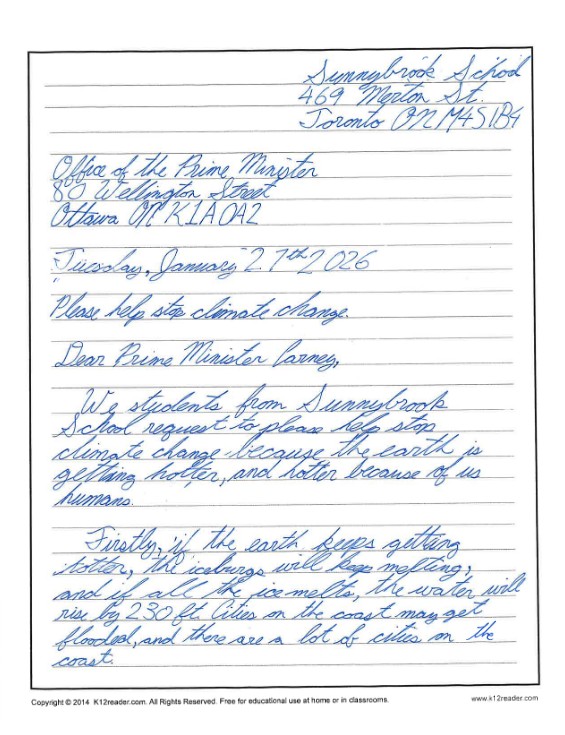 Sunnybrook School
469 Merton St.
Toronto ON M4S 1B4
Office of the Prime Minister
80 Wellington Street
Ottawa ON K1A 0A2
Tuesday, January 27th 2026
Please help stop climate change.
Dear Prime Minister Carney,
We students from Sunnybrook
School request to please help stop
climate change because the earth is
getting hotter, and hotter because of us
humans.
Firstly, if the earth keeps getting
hotter, the iceburgs will keep melting,
and if all the ice melts, the water will
rise by 230 ft. Cities on the coast may get
flooded, and there are a lot of cities on the
coast.
Copyright © 2014 K12reader.com. All Rights Reserved. Free for educational use at home or in classrooms.
www.k12reader.com